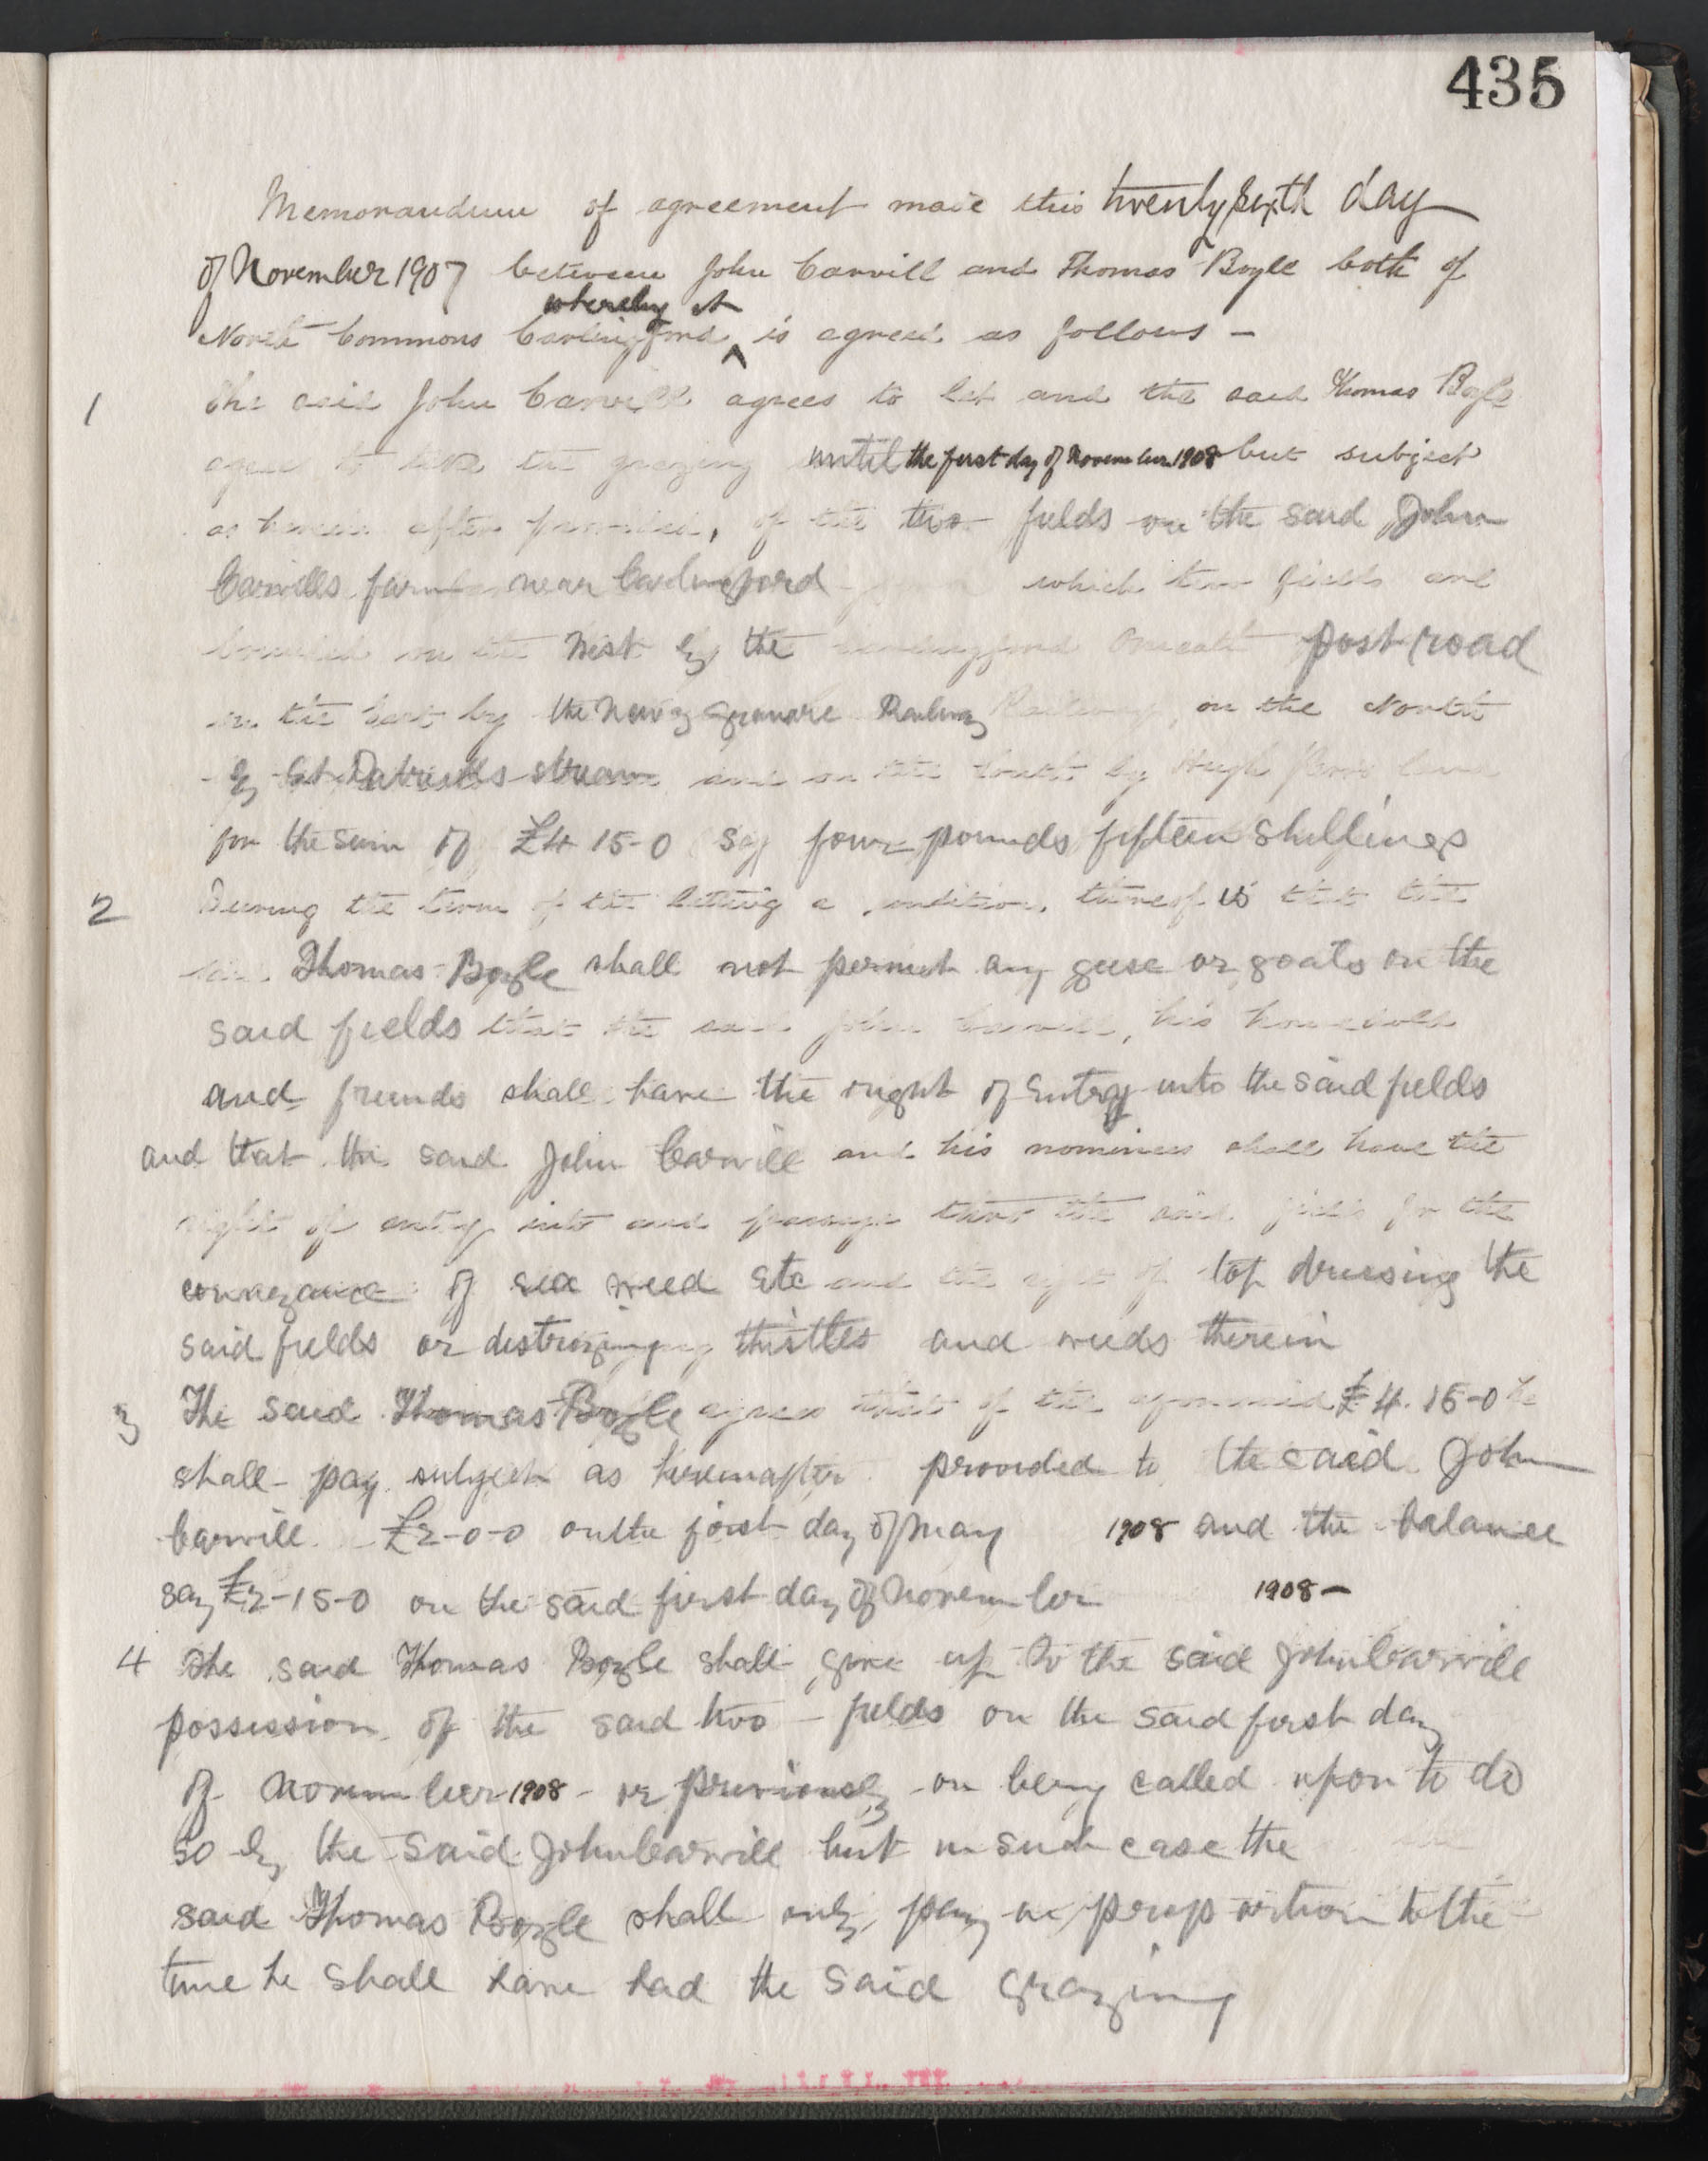 435
Memorandum of agreement made this twenty sixth day
of November 1907 between John Carvill and Thomas Boyle both of
whereby it
North Commons Carlingford ^ is agreed as follows -
1 The said John Carvill agrees to let and the said Thomas Boyle
agrees to take the grazing until the first day of November 1908 but subject
as herein after provided, of the two fields on the said John
Carvills farm near Carlingford which two fields are
bounded on the West by the Carlingford Omeath post road
on the East by the Newry Greenore Railway, on the North
by St Patricks stream and on the South by Hugh land
for the sum of £4 15-0 say four pounds fifteen shillings
2 During the term of the letting a condition thereof is that the
said Thomas Boyle shall not permit any geese or goats on the
said fields that the said John Carvill, his household
and friends shall have the right of Entry into the said fields
and that the said John Carvill and his nominees shall have the
right of entry into and passage thro the said fields for the
conveyance of sea weed etc and the right of top dressing the
said fields or distroying thistles and weeds therein
3 The said Thomas Boyle agrees that of the aforesaid £4. 15-0 he
shall pay subject as hereinafter provided to the said John
Carvill £2-0-0 on the first day of May 1908 and the balance
say £2-15-0 on the said first day of November 1908 -
4 The said Thomas Boyle shall give up to the said John Carvill
possession of the said two - fields on the said first day
of November 1908 - or previously on being called upon to do
so by the said John Carvill but in such case the
said Thomas Boyle shall only pay in proportion to the
time he shall have had the said grazing